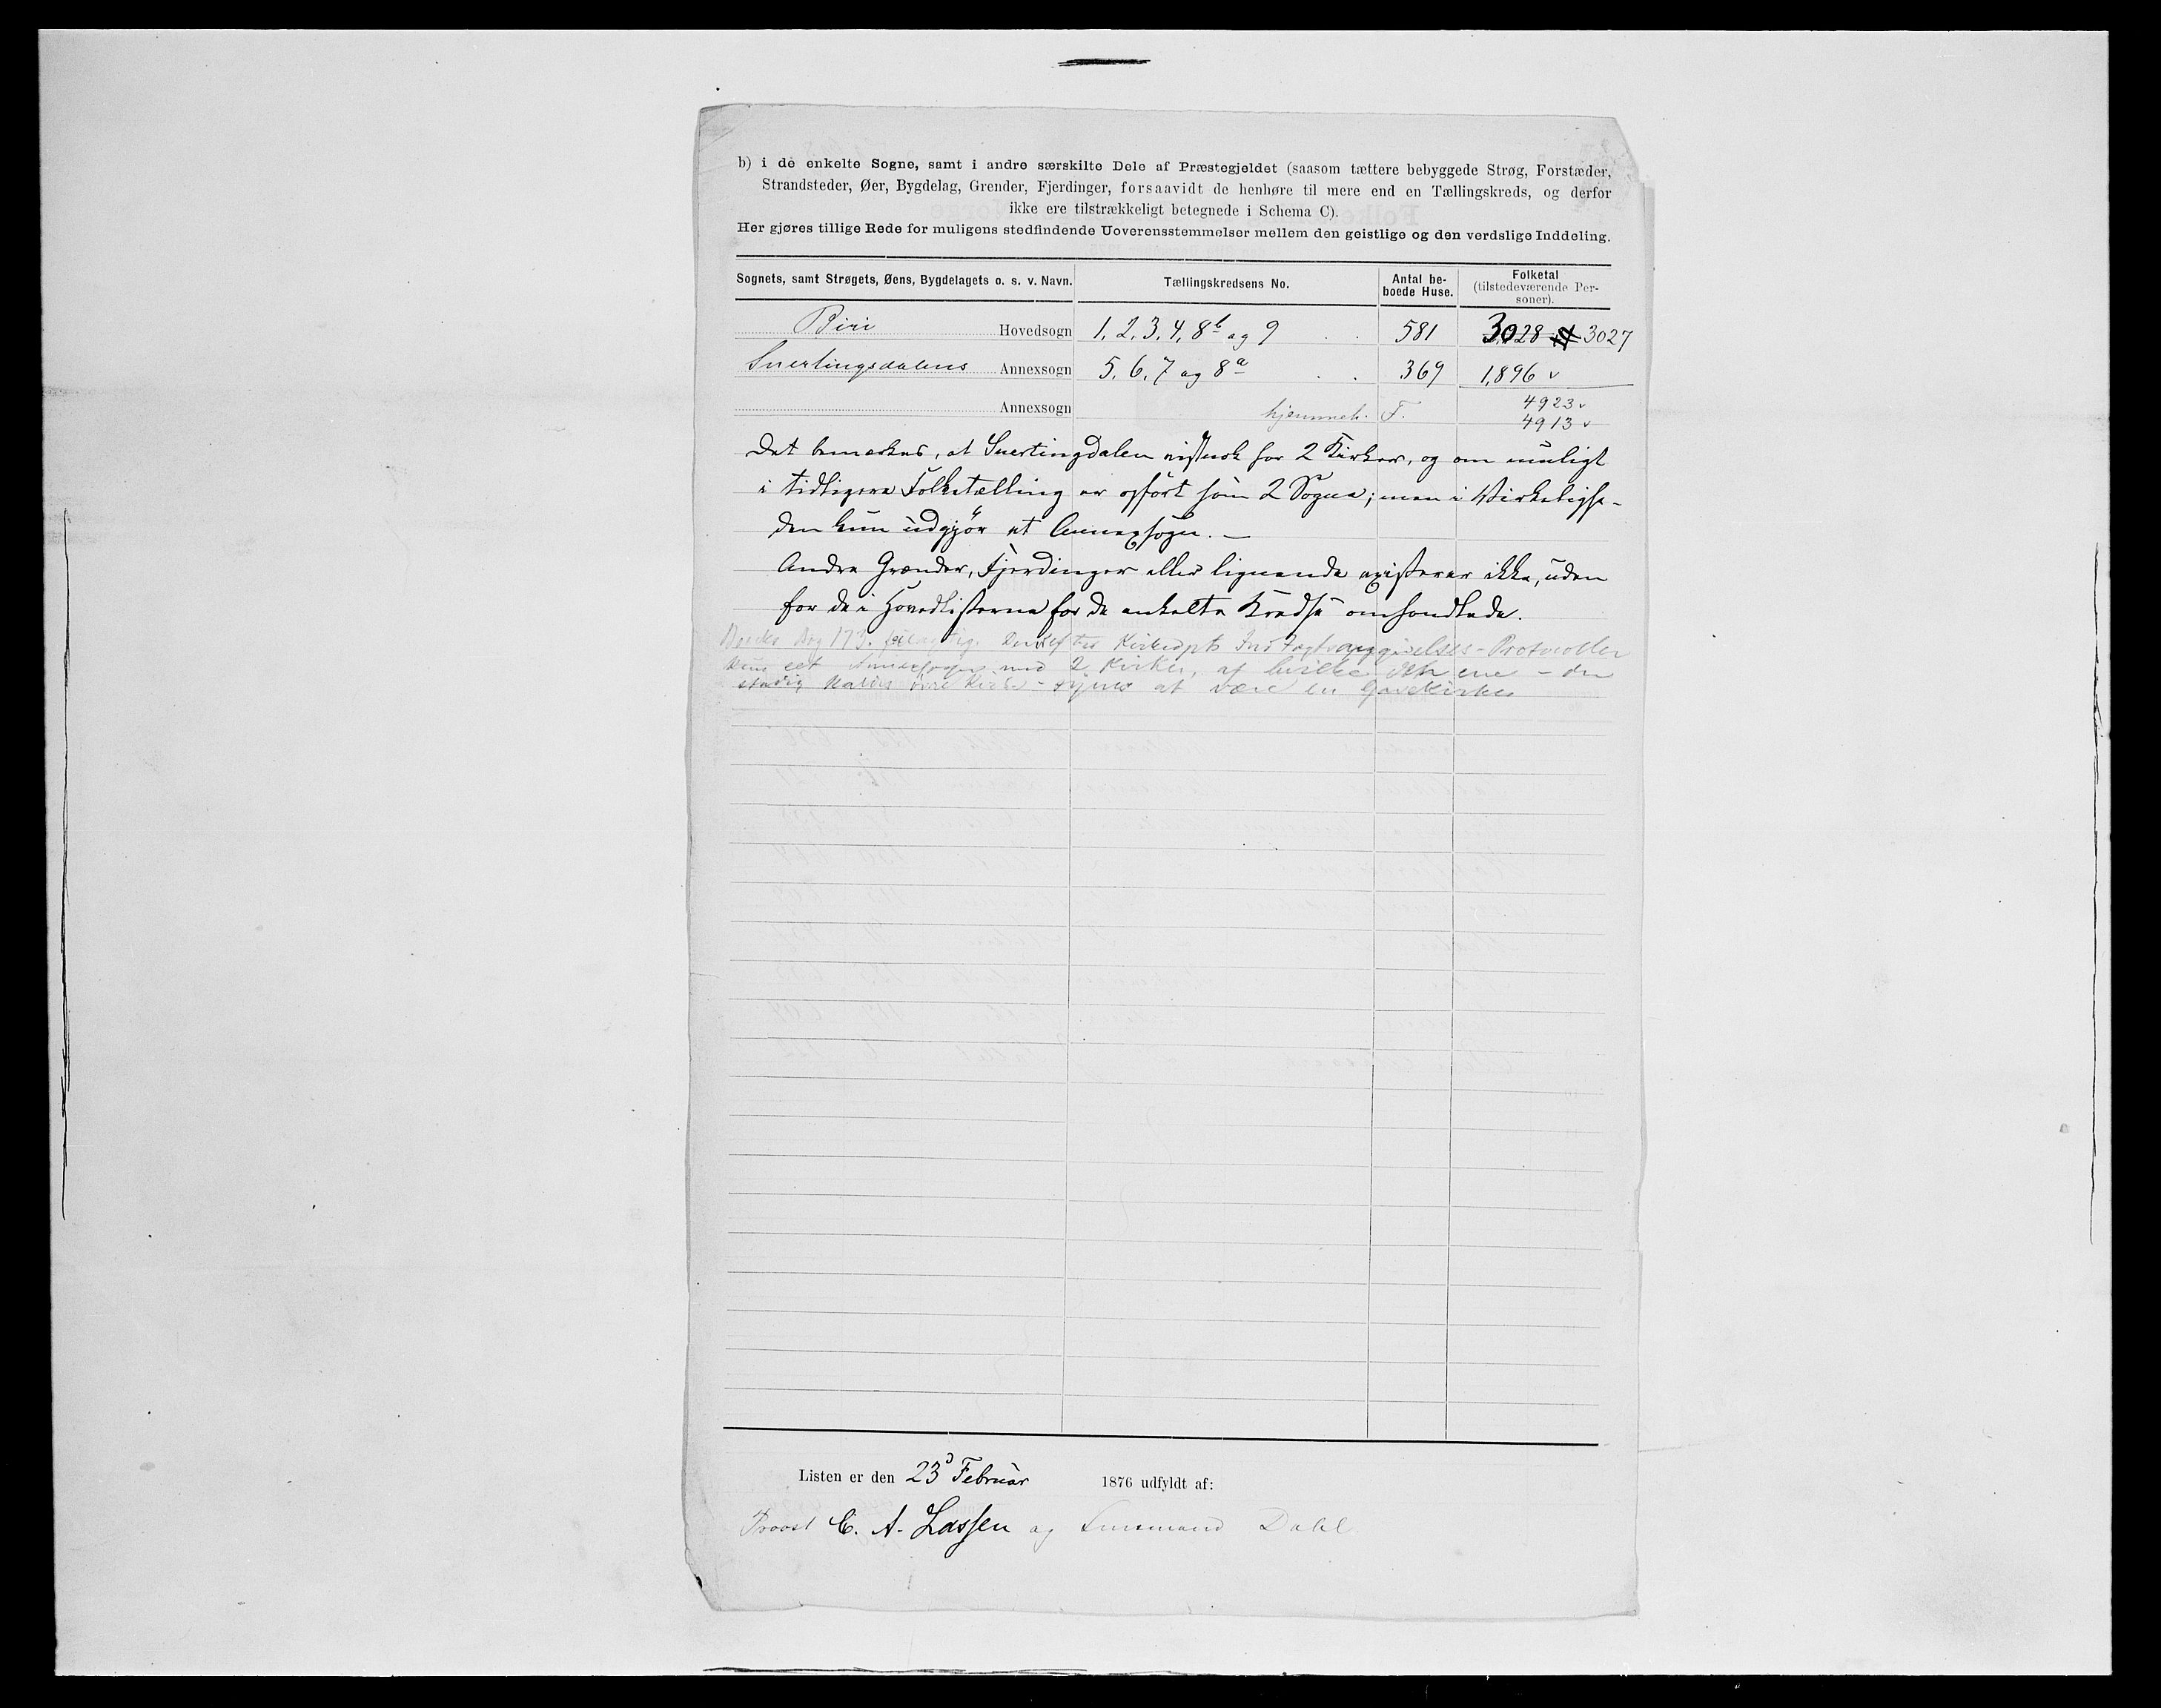 b) i de enkelte Sogne, samt i andre særskilte Dele af Præstegjeldet (saasom tættere bebyggede Strøg, Forstæder,
Strandsteder, Øer, Bygdelag, Grender, Fjerdinger, forsaavidt de henhøre til mere end en Tællingskreds, og derfor
ikke ere tilstrækkeligt betegnede i Schema C).
Her gjøres tillige Rede for muligens stedfindende Uoverensstemmelser mellem den geistlige og den verdslige Inddeling.
Sognets, samt Strøgets, Øens, Bygdelagets o. s. v. Navn. Tællingskredsens No. Antal be- boede Huse. Folketal (tilstedeværende Per- soner).
Biri Hovedsogn 1, 2, 3, 4, 8b og 9 581 3028 3027
Snertingsdalens Annexsogn 5, 6, 7 og 8a 369 1,896 v
Annexsogn hjemmeh. F. 4923 v
4913 v
Det bemærkes, at Snertingdalen vistnok har 2 Kirker, og om muligt
i tidligere Folketælling er opført som 2 Sogne; men i Virkelighe-
den kun udgjør et Annexsogn. —
Andre Grænder, Fjerdinger eller lignende existerer ikke, uden
for de i Hovedlisterne for de enkelte Kredse omhandlede.
Norske Kirkedpts Indtægtsangivelses-Protocoller
kun eet Annexsogn med 2 Kirker, af hvilke den ene – den
stadig Kirke – synes at være en Gavekirke
Listen er den 23d Februar 1876 udfyldt af:
Provst C. A. Lassen og Lensmand Dahl